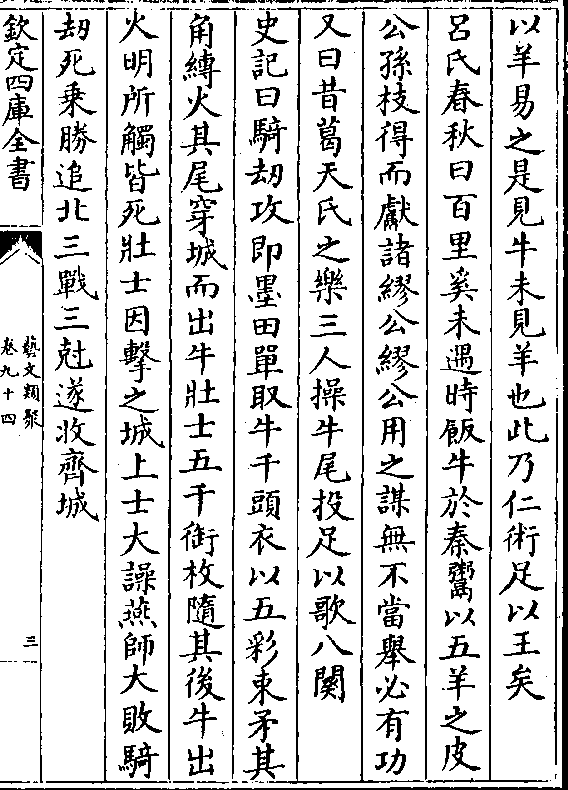 以羊易之是見牛未見羊也此乃仁術足以王矣
呂氏春秋曰百里奚未遇時飯牛於秦鬻以五羊之皮
公孫枝得而獻諸繆公繆公用之謀無不當舉必有功
又曰昔葛天氏之樂三人操牛尾投足以歌八闋
史記曰騎劫攻即墨田單取牛千頭衣以五彩束矛其
角縛火其尾穿城而出牛壯士五千銜枚隨其後牛出
火明所觸皆死壯士因擊之城上士大譟燕師大敗騎
刼死乗勝追北三戰三尅遂收齊城
欽定四庫全書
藝文類聚
卷九十四
三